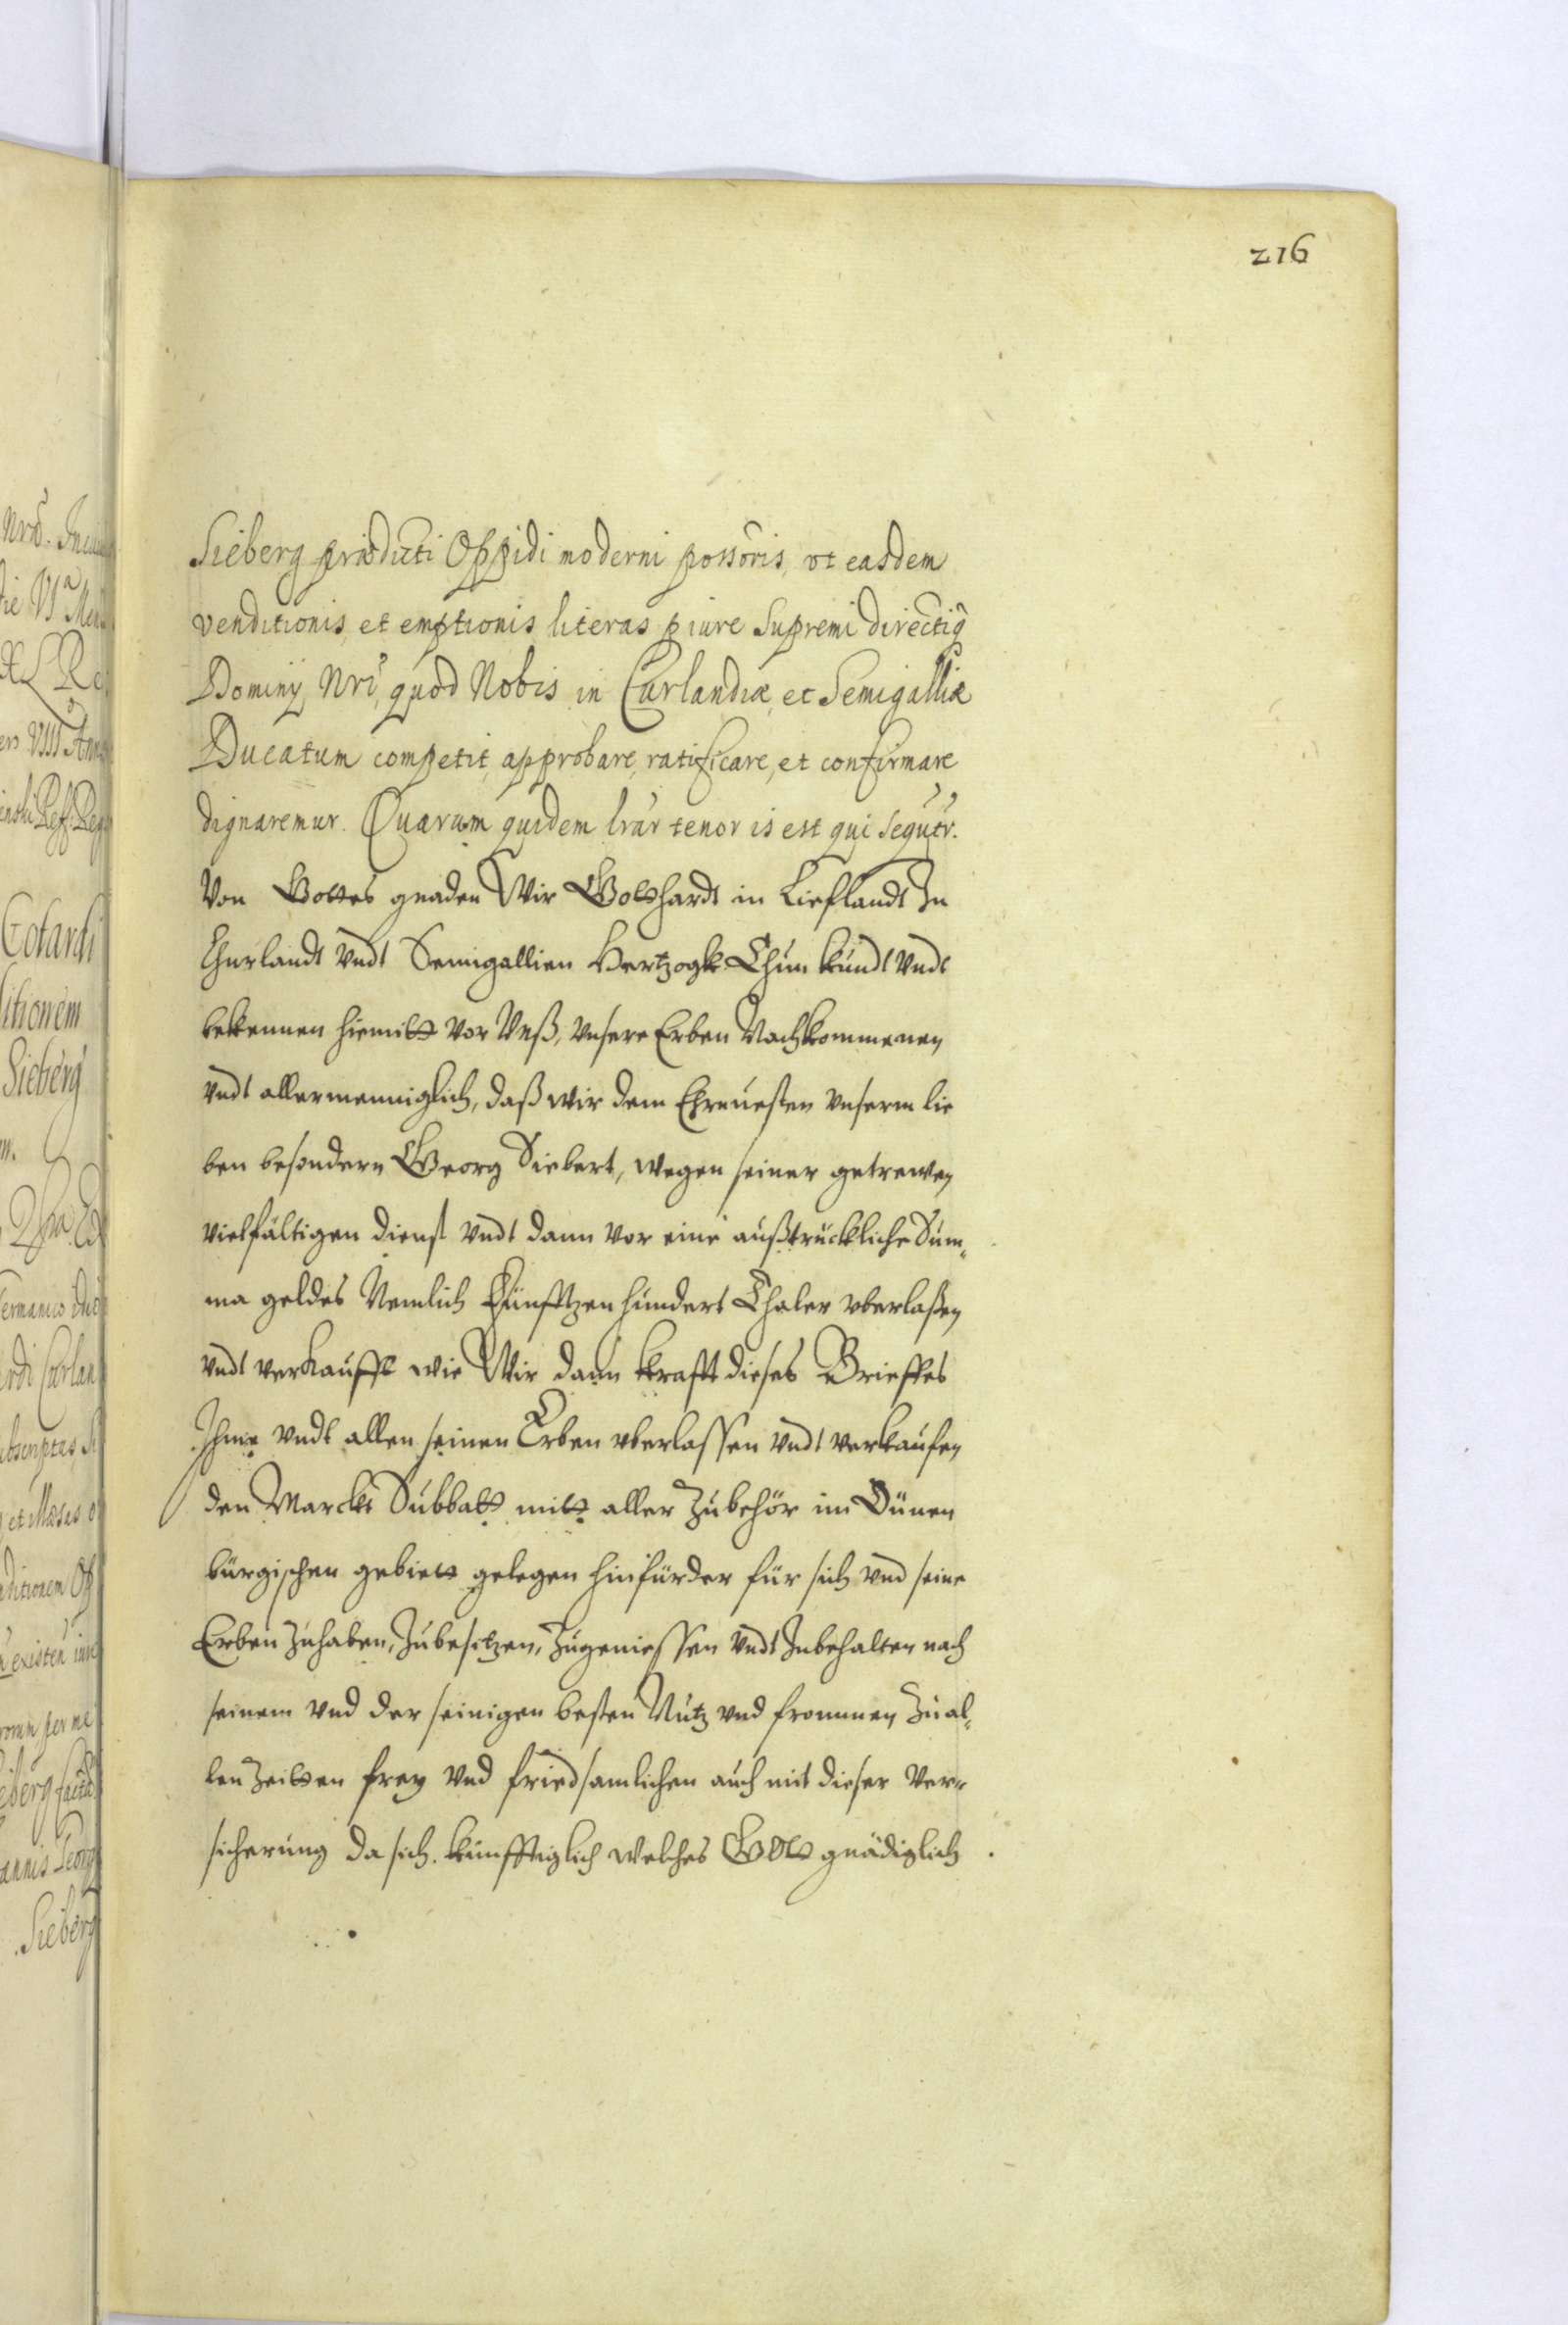 216
Sieberg prædicti Oppidi moderni possoris, vt easdem
venditionis, et emptionis literas p iure Supremi directiq
Dominij Nri, quod Nobis in Curlandiæ, et Semigalliæ
Ducatum competit, approbare, ratificare, et confirmare
dignaremur. Quarum quidem lrar tenor is est qui sequtr.
Von Gottes gnaden Wir Gotthardt in Lieflandt Zu
Churlandt vndt Semigallien Hertzogk Thun kundt vndt
bekennen hiemitt vor Vnß, vnsere Erben Nachkommenen
vndt allermenniglich, daß wir dem Ehrnuesten vnserm lie
ben besondern Georg Siebert, wegen seiner getrewen
vielfältigen dienst vndt dann vor eine außtrückliche Sum-
ma geldes Nemlich Fünfftzen hundert Thaler vberlaßen
vndt verkaufft wie Wir dann krafft dieses Brieffes
Ihme vndt allen seinen Erben vberlassen vndt verkaufen
den Marckt Subbatt mitt aller Zubehör im Dünen
bürgischen gebiett gelegen hinfürder für sich vnd seine
Erben Zuhaben, Zubesitzen, Zugeniessen vndt Zubehalten nach
seinem vnd der seinigen besten Nutz vnd frommen Zu al-
len Zeitten frey vnd friedsamlichen auch mit dieser Ver-
sicherung da sich künfftiglich welches Gott gnädiglich